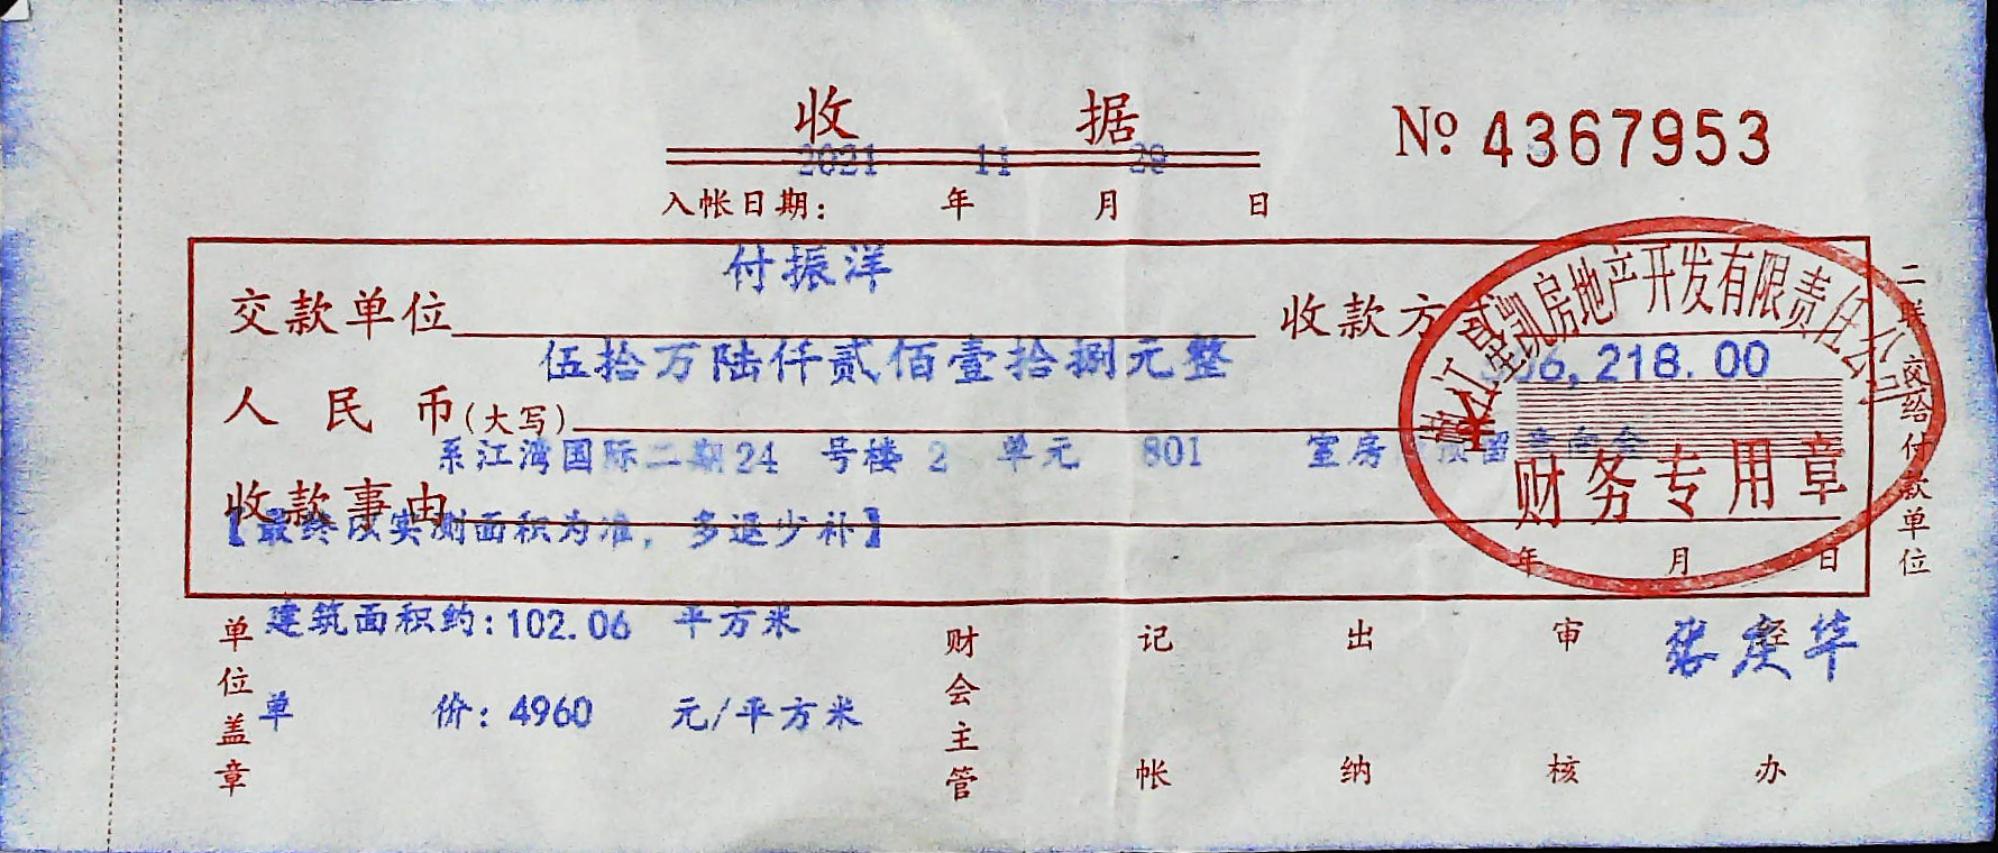 收 据
№ 4367953
2021 11 28
入帐日期： 年 月 日
付振洋
交款单位 收款方
伍拾万陆仟贰佰壹拾捌元整 506,218.00
人民币(大写) ¥
系江湾国际二期24 号楼 2 单元 801 室房 预留
收款事由
【最终以实测面积为准，多退少补】
年 月 日
房地产开发有限责任公司
财务专用章
二联 交给付款单位
建筑面积约:102.06 平方米
单 价: 4960 元/平方米
单位盖章 财会主管 记帐 出纳 审核 经办
张庆华